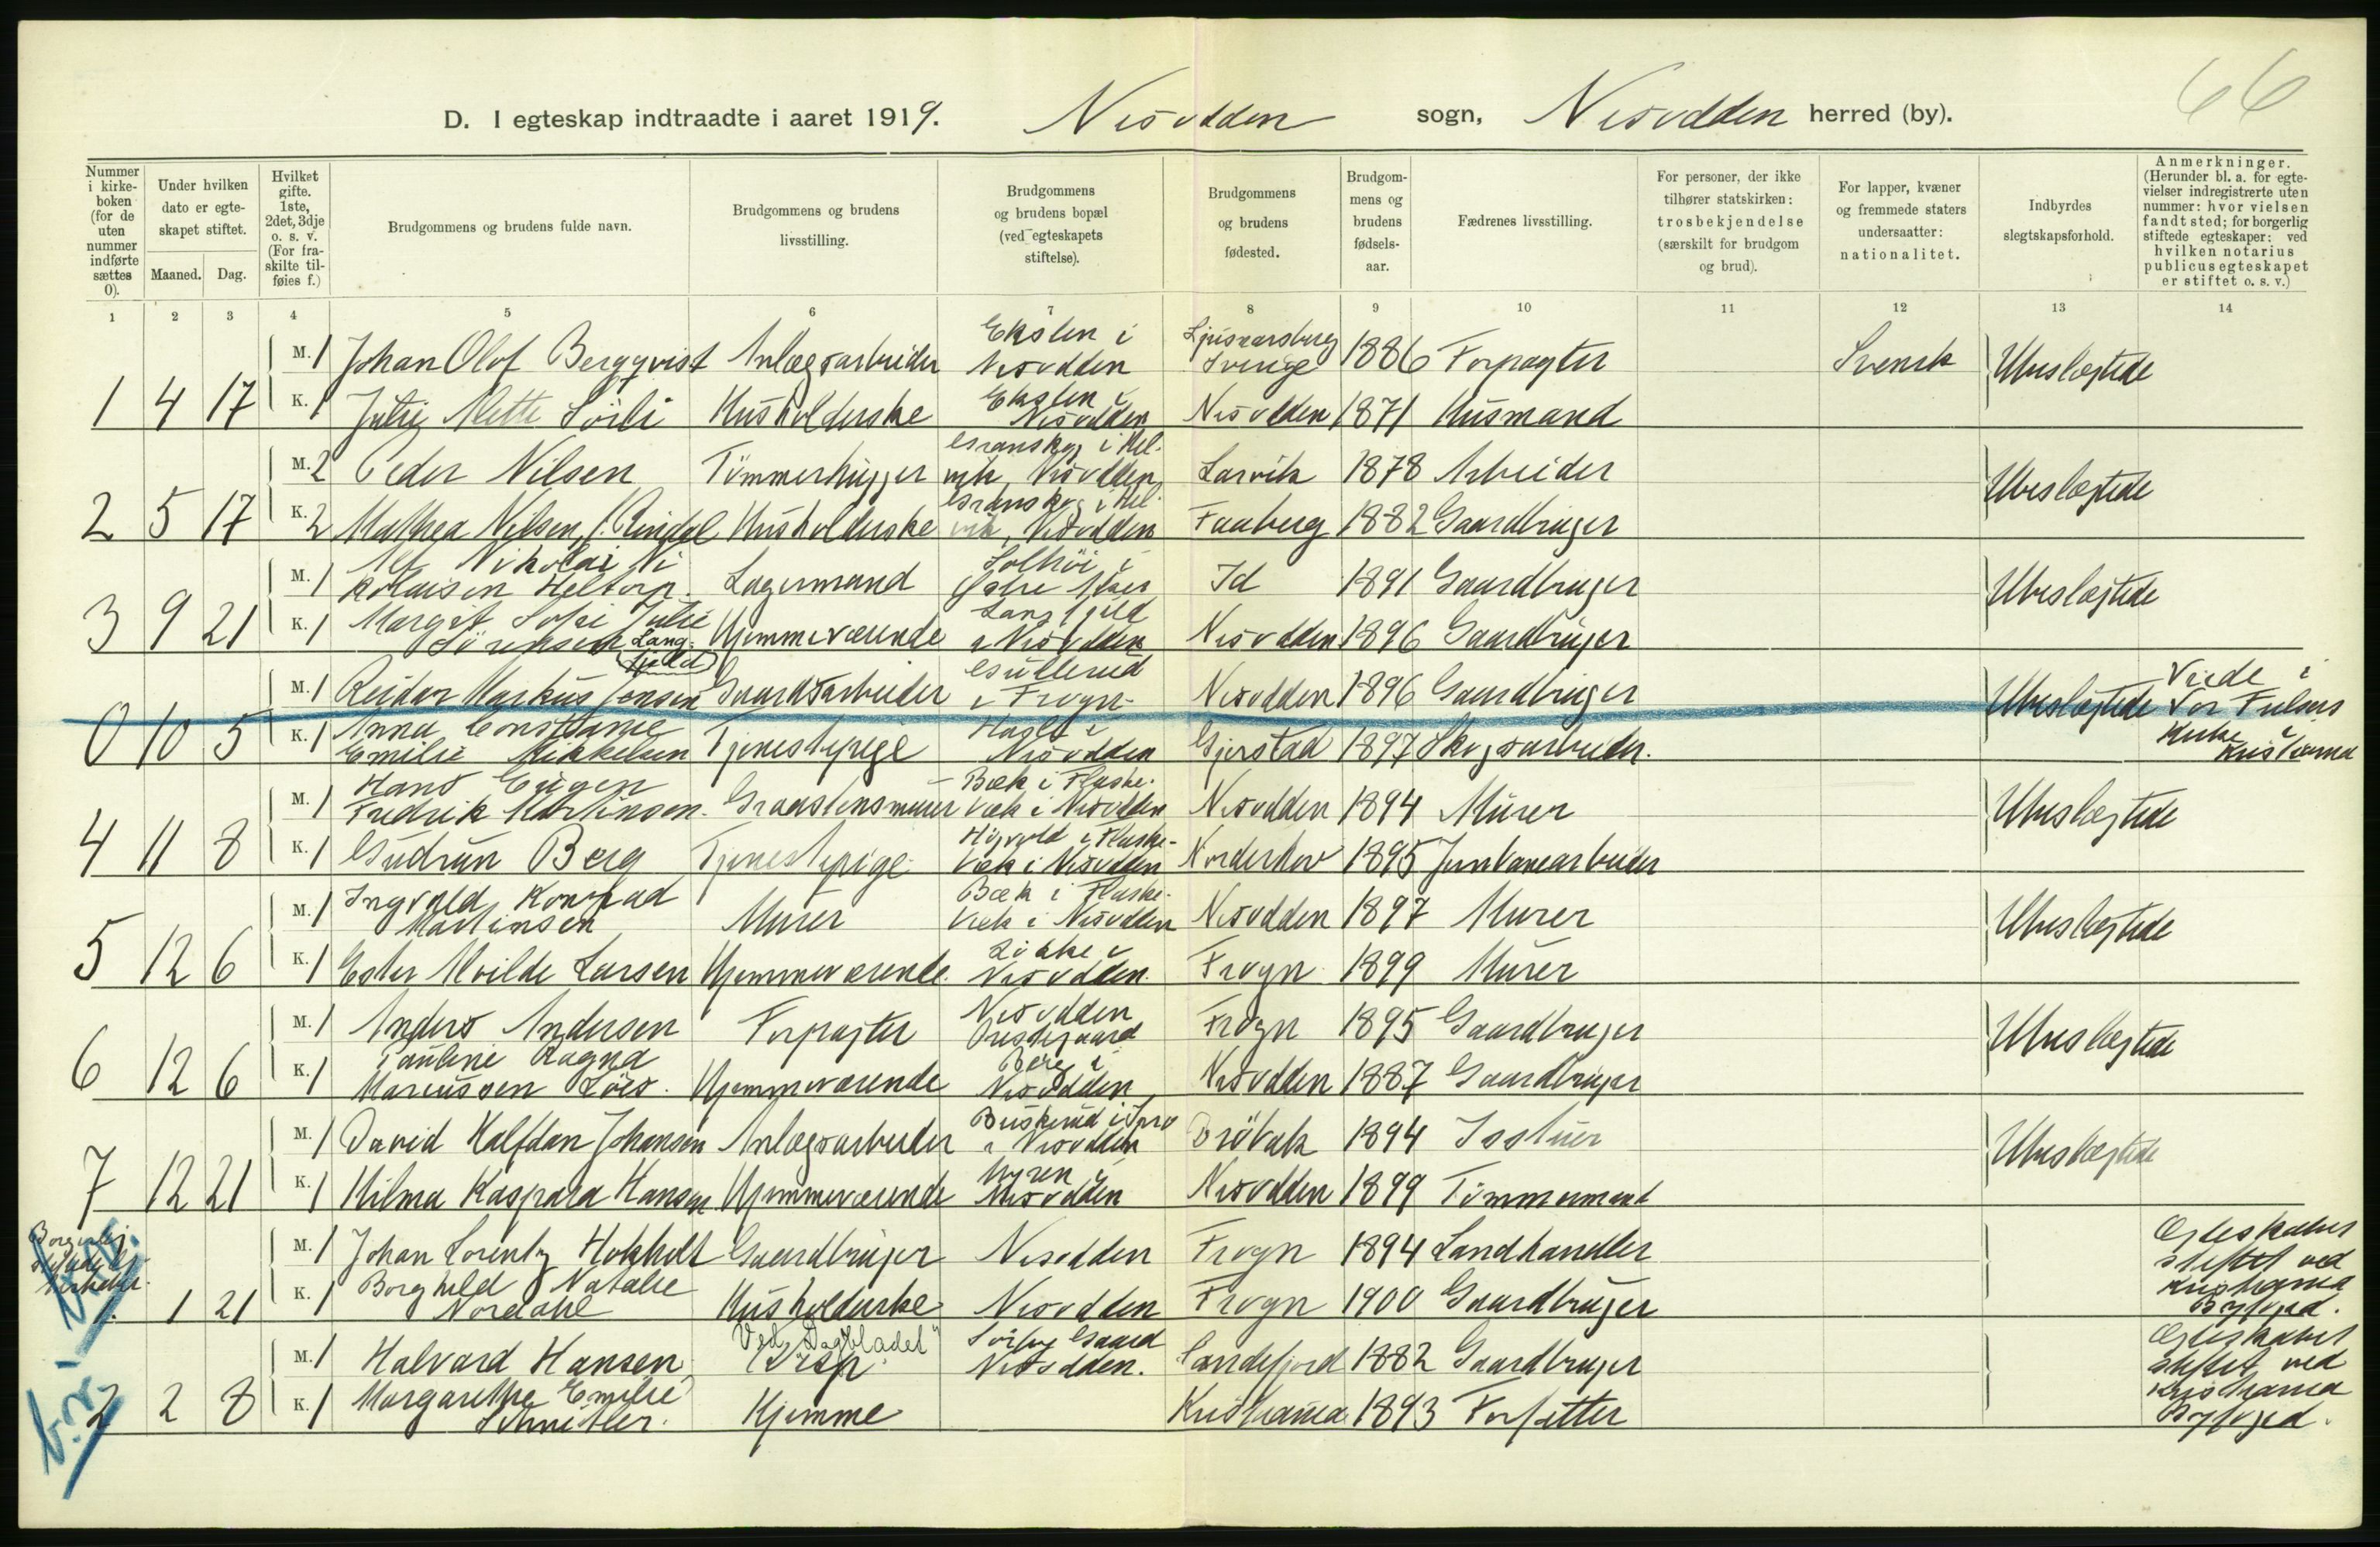 66
D. I egteskap indtraadte i aaret 1919. Nesodden sogn, Nesodden herred (by).
Nummer i kirkeboken (for de uten nummer indførte sættes 0).
Under hvilken dato er egteskapet stiftet.
Maaned. Dag.
Hvilket gifte. 1ste, 2det, 3dje o. s. v. (For fraskilte tilføies f.)
Brudgommens og brudens fulde navn.
Brudgommens og brudens livsstilling.
Brudgommens og brudens bopæl (ved egteskapets stiftelse).
Brudgommens og brudens fødested.
Brudgommens og brudens fødselsaar.
Fædrenes livsstilling.
For personer, der ikke tilhører statskirken: trosbekjendelse (særskilt for brudgom og brud).
For lapper, kvæner og fremmede staters undersaatter: nationalitet.
Indbyrdes slegtskapsforhold.
Anmerkninger. (Herunder bl. a. for egtevielser indregistrerte uten nummer: hvor vielsen fandt sted; for borgerlig stiftede egteskaper: ved hvilken notarius publicus egteskapet er stiftet o. s. v.)
1 2 3 4 5 6 7 8 9 10 11 12 13 14
M. 1 Johan Olof Bergqvist Anlægsarbeider Eksten i Nesodden Ljusnarsberg Sverige 1886 Forpagter Svensk Ubeslegtede
1 4 17 K. 1 Julie Mette Sörli Husholderske Eksten i Nesodden Nesodden 1871 Husmand
M. 2 Peder Nilsen Tömmerhugger Granskog i Hel- vik, Nesodden Larvik 1878 Arbeider Ubeslægtede
2 5 17 K. 2 Mathea Nilsen, f. Rindal Husholderske Granskog i Hel- vik, Nesodden Faaberg 1882 Gaardbruger
M. 1 Alf Nikolai Ni- kolaisen Heltorp Lagermand Solhöi i Östre Aker Id 1891 Gaardbruger Ubeslægtede
3 9 21 K. 1 Margit Sofie Julie Sörensen Lang- fjeld Hjemmeværende Langfjeld i Nesodden Nesodden 1896 Gaardbruger
M. 1 Reidar Markus Jensen Gaardsarbeider Gullerud i Frogn Nesodden 1896 Gaardbruger Ubeslægtede Viede i Vor Frelsers Kirke i Kristiania
0 10 5 K. 1 Anna Constanse Emilie Mikkelsen Tjenestepige Hasle i Nesodden Gjerstad 1897 Skogsarbeider.
M. 1 Hans Eugen Fredrik Martinsen Graastensmurer Bæk i Flaske- bæk i Nesodden Nesodden 1894 Murer Ubeslægtede
4 11 8 K. 1 Gudrun Berg Tjenestepige Högvold i Flaske- bæk i Nesodden Norderhov 1895 Jernbanearbeider
M. 1 Ingvald Konrad Martinsen Murer Bæk i Flaske- bæk i Nesodden Nesodden 1897 Murer Ubeslægtede
5 12 6 K. 1 Ester Alvilde Larsen Hjemmeværende Lökke i Nesodden Frogn 1899 Murer
M. 1 Anders Andersen Forpagter Nesodden Prestegaard Frogn 1895 Gaardbruger Ubeslægtede
6 12 6 K. 1 Pauline Ragna Marcussen Löes. Hjemmeværende Berg i Nesodden Nesodden 1887 Gaardbruger
M. 1 David Halfdan Johansen Anlægsarbeider Buskerud i Spro i Nesodden Dröbak 1894 Isstuer Ubeslægtede
7 12 21 K. 1 Hilma Kaspara Hansen Hjemmeværende Myren i Nesodden Nesodden 1899 Tömmermand
Borgerlig stiftede egteskaper.
M. 1 Johan Lorentz Hokholt Gaardbruger Nesodden Frogn 1894 Landhandler Egteskabet stiftet ved Kristiania Byfoged.
1. 1 21 K. 1 Borghild Natalie Nordahl Husholderske Nesodden Frogn 1900 Gaardbruger
M. 1 Halvard Hansen Ved "Dagbladet" Exsp. Sörby Gaard Nesodden. Sandefjord 1882 Gaardbruger Egteskabet stiftet ved Kristiania Byfoged.
2 2 8 K. 1 Margarethe Emilie Schnitler. Hjemme Kristiania 1893 Forfatter